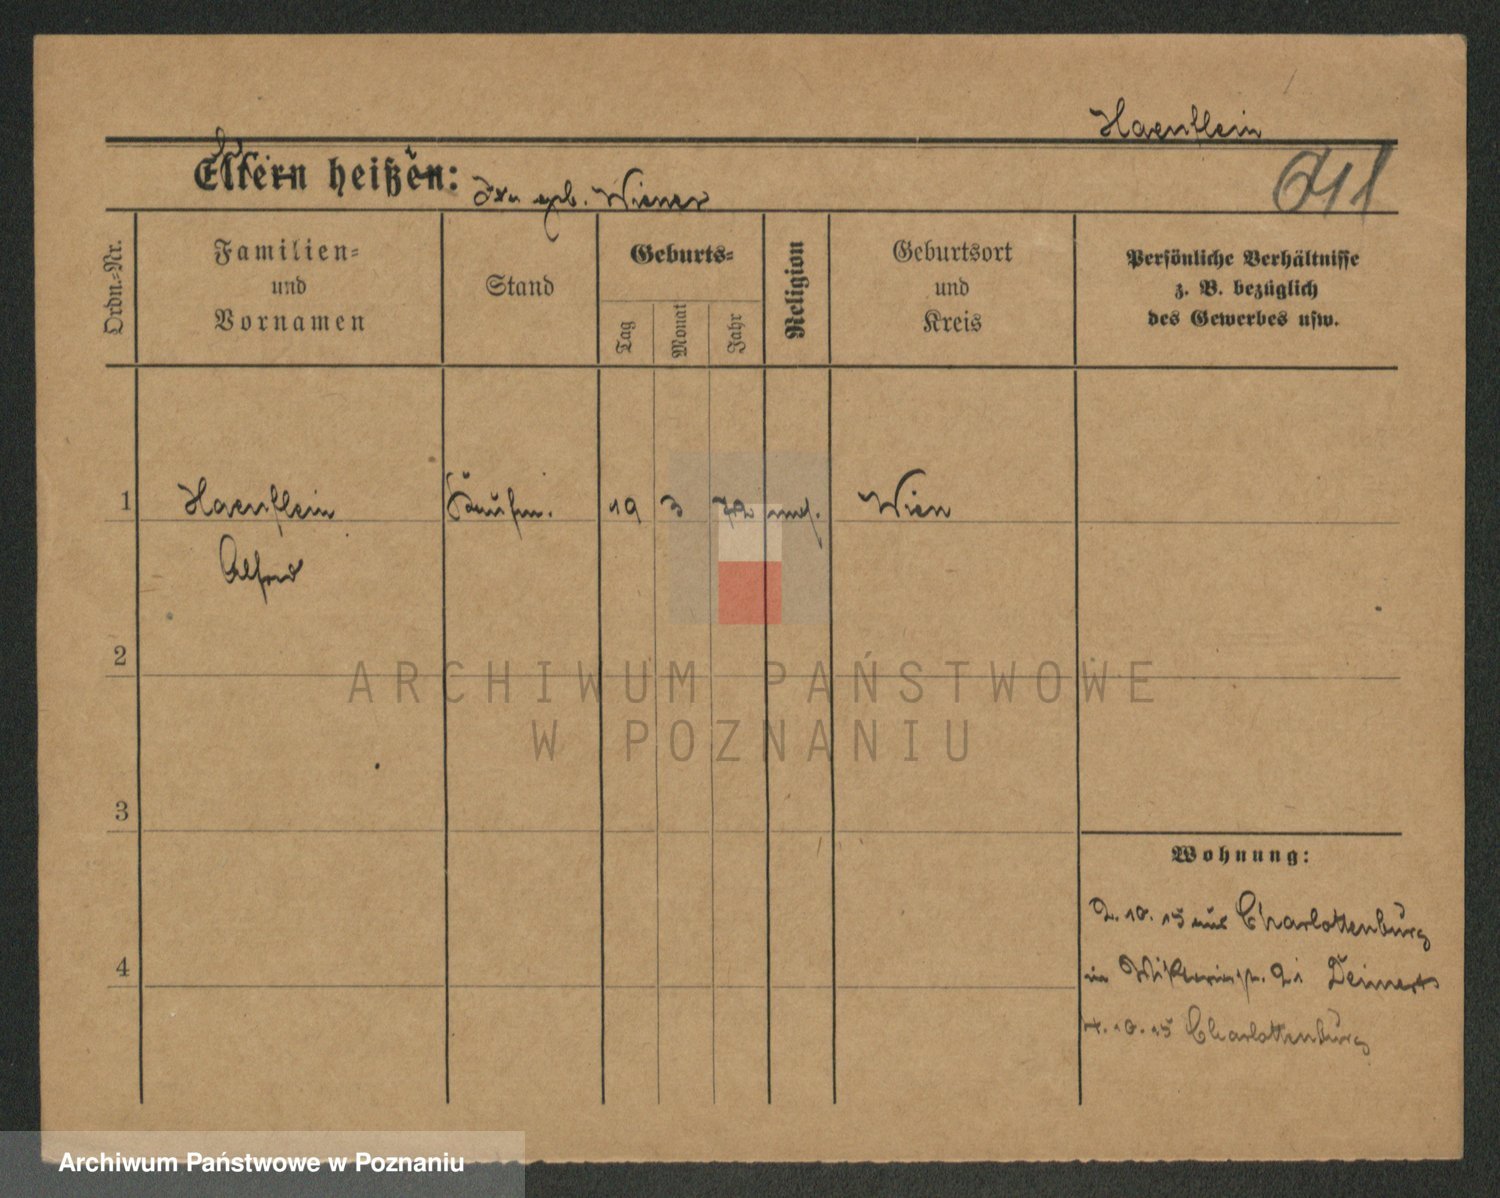 Haenflein
Eltern heißen:
geb. Wiener
641
Ordn.-Nr.
Familien-
und
Vornamen
Stand
Geburts-
Tag
Monat
Jahr
Religion
Geburtsort
und
Kreis
Persönliche Verhältnisse
z. B. bezüglich
des Gewerbes usw.
1 Haenflein Kaufm. 19 3 72 mos. Wien
Alfred
2
ARCHIWUM PAŃSTWOWE
W POZNANIU
3
Wohnung:
2.10.15 aus Charlottenburg
4
in 21
4.10.15 Charlottenburg
Archiwum Państwowe w Poznaniu